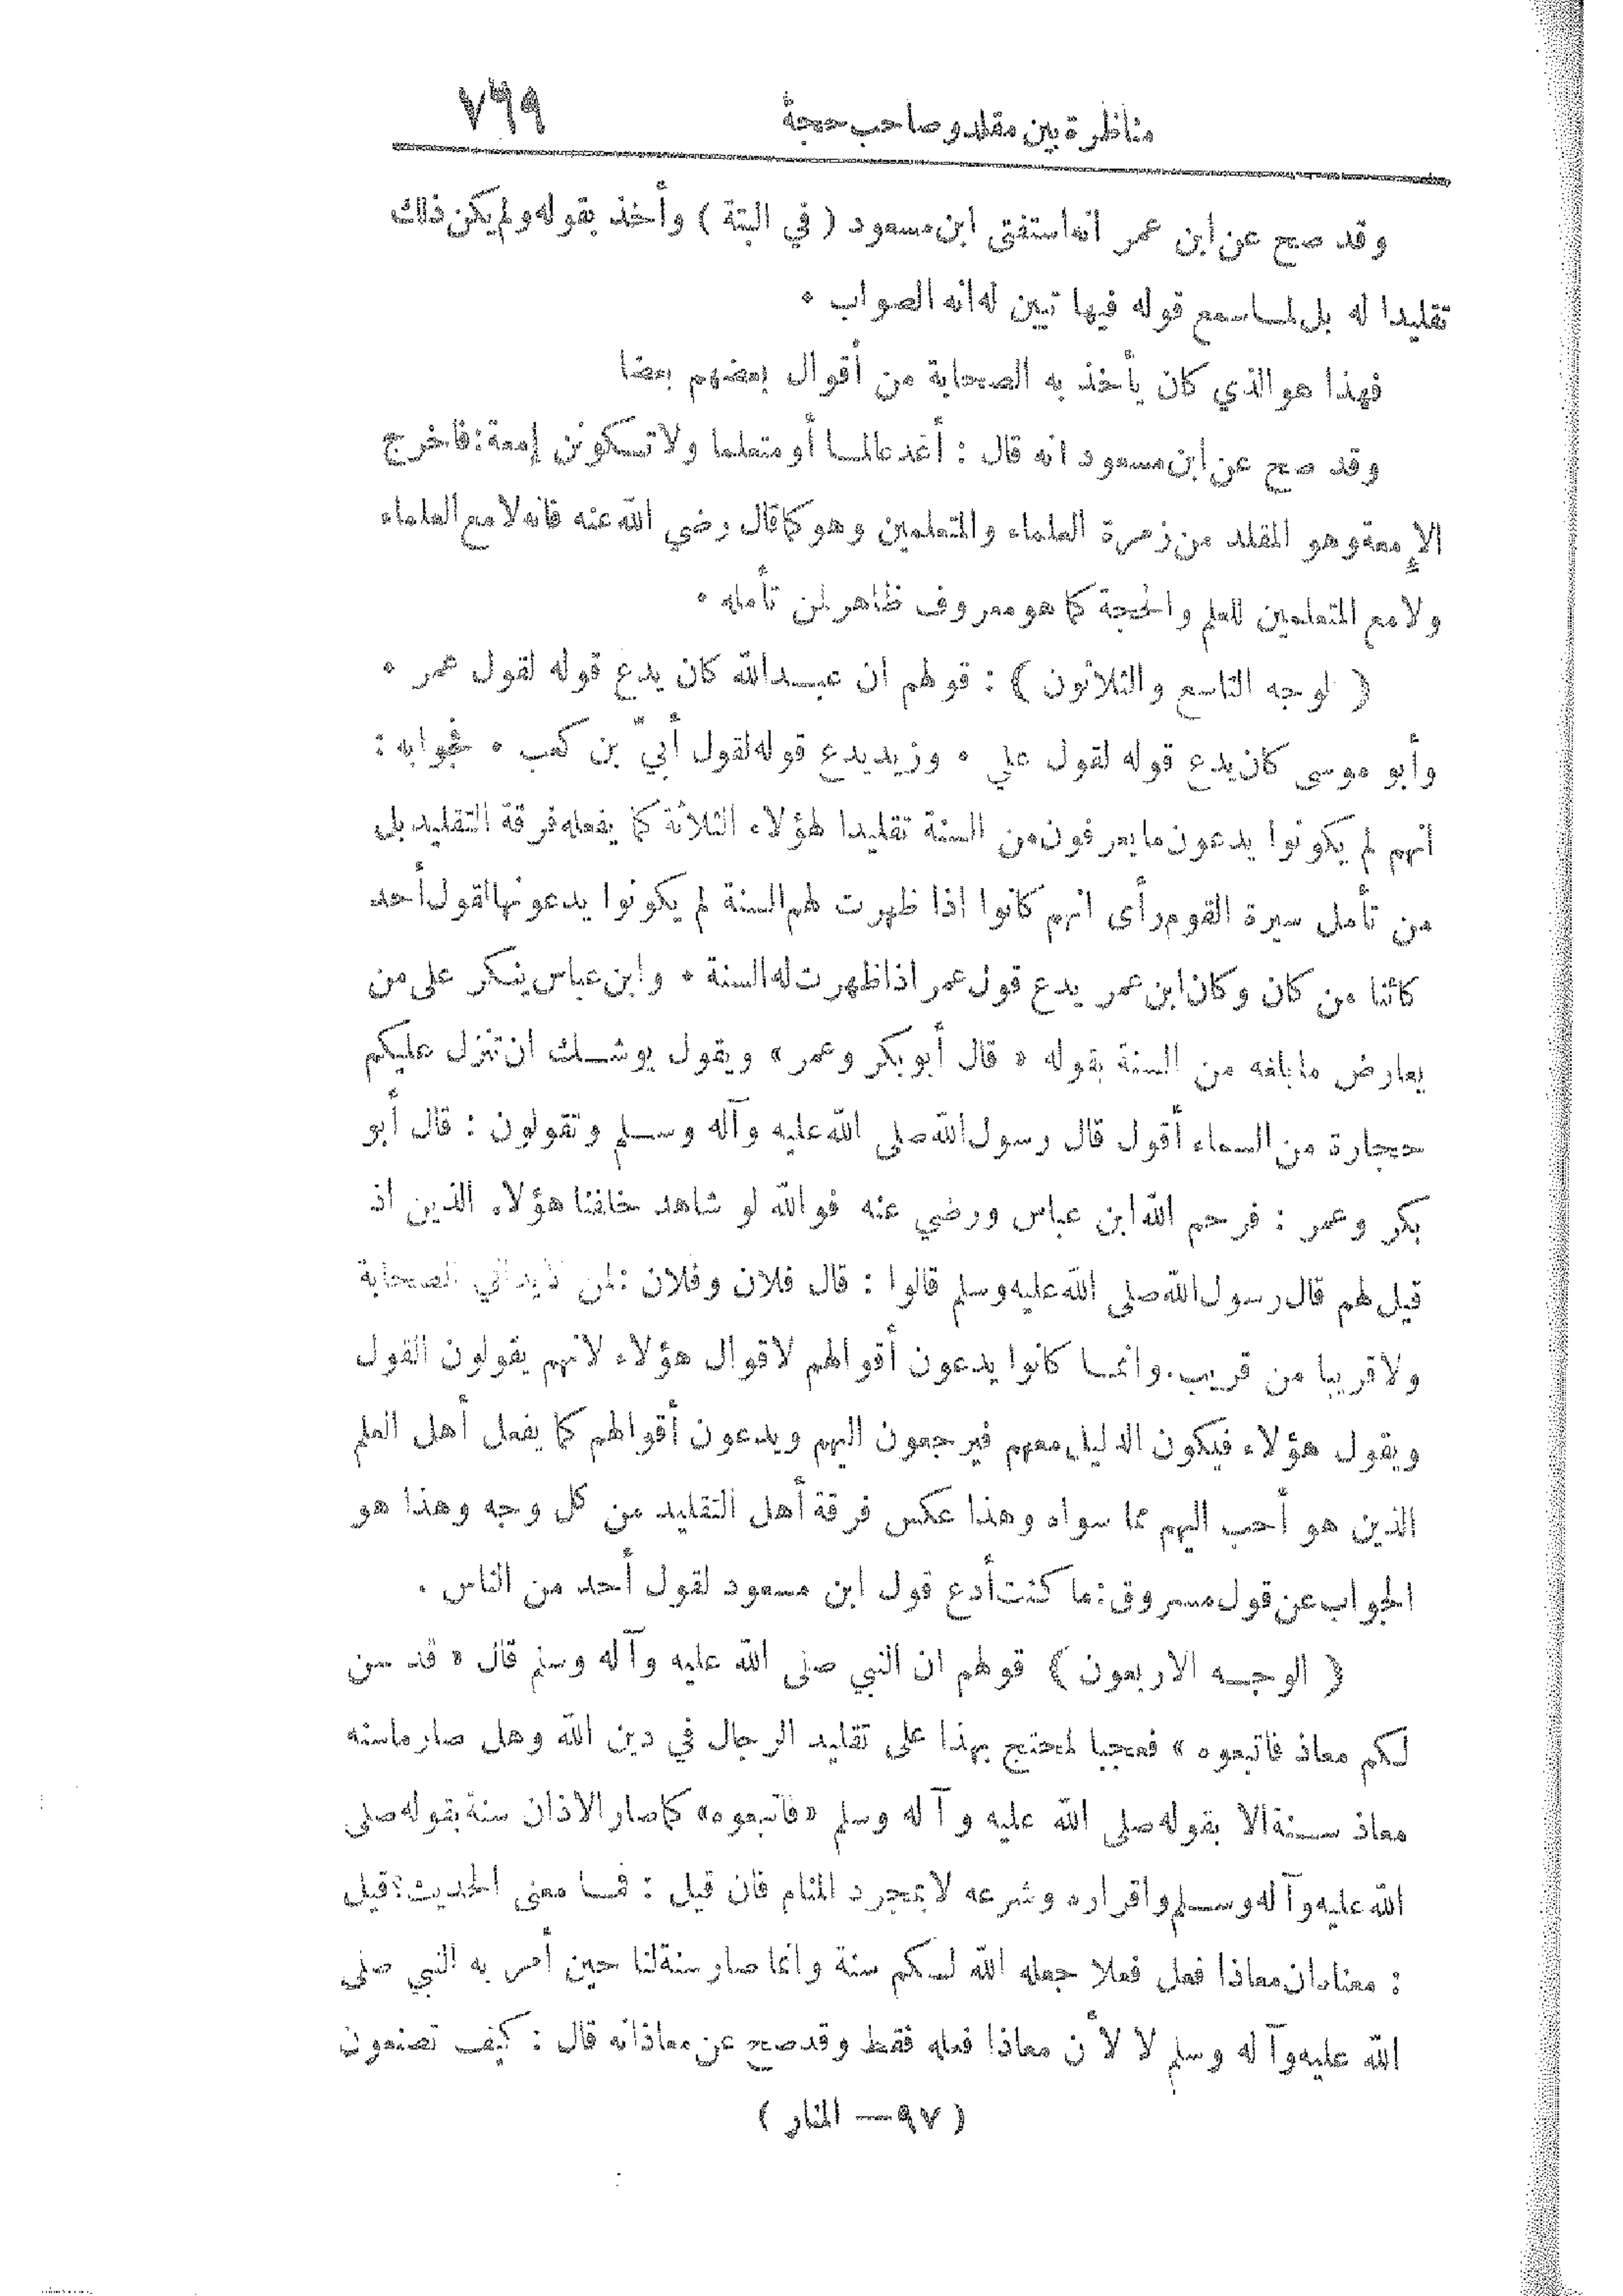 مناظرة بين مقلد وصاحب حجة ٧٦٩
وقد صح عن ابن عمر انه استفتى ابن مسعود ( في البتة ) وأخذ بقوله ولم يكن ذلك
تقليدا له بل لما سمع قوله فيها تبين له انه الصواب ٠
فهذا هو الذي كان يأخذ به الصحابة من أقوال بعضهم بعضا
وقد صح عن ابن مسعود انه قال : أغد عالما أو متعلما ولا تكونن إمعة : فاخرج
الإمعة وهو المقلد من زمرة العلماء والمتعلمين وهو كما قال رضي الله عنه فانه لا مع العلماء
ولا مع المتعلمين للعلم والحجة كما هو معروف ظاهر لمن تأمله ٠
( لوجه التاسع والثلاثون ) : قولهم ان عبد الله كان يدع قوله لقول عمر ٠
وأبو موسى كان يدع قوله لقول علي ٠ وزيد يدع قوله لقول أبيّ بن كعب ٠ فجوابه :
انهم لم يكونوا يدعون ما يعرفون من السنة تقليدا لهؤلاء الثلاثة كما يفعله فرقة التقليد بل
من تأمل سيرة القوم رأى انهم كانوا اذا ظهرت لهم السنة لم يكونوا يدعونها لقول أحد
كائنا من كان وكان ابن عمر يدع قول عمر اذا ظهرت له السنة ٠ وابن عباس ينكر على من
يعارض ما بلغه من السنة بقوله « قال أبو بكر وعمر » ويقول يوشك ان تنزل عليكم
حجارة من السماء أقول قال رسول الله صلى الله عليه وآله وسلم وتقولون : قال أبو
بكر وعمر : فرحم الله ابن عباس ورضي عنه فوالله لو شاهد خلفنا هؤلاء الذين اذ
قيل لهم قال رسول الله صلى الله عليه وسلم قالوا : قال فلان وفلان : لمن الصحابة
ولا قريبا من قريب. وانما كانوا يدعون أقوالهم لاقوال هؤلاء لانهم يقولون القول
ويقول هؤلاء فيكون الدليل معهم فيرجعون اليهم ويدعون أقوالهم كما يفعل أهل العلم
الذين هو أحب اليهم مما سواه وهذا عكس فرقة أهل التقليد من كل وجه وهذا هو
الجواب عن قول مسروق : ما كنت أدع قول ابن مسعود لقول أحد من الناس .
( الوجه الاربعون ) قولهم ان النبي صلى الله عليه وآله وسلم قال « قد سن
لكم معاذ فاتبعوه » فعجبا لمحتج بهذا على تقليد الرجال في دين الله وهل صار ما سنه
معاذ سنة الا بقوله صلى الله عليه وآله وسلم «فاتبعوه» كما صار الاذان سنة بقوله صلى
الله عليه وآله وسلم واقراره وشرعه لا بمجرد المنام فان قيل : فما معنى الحديث؟ قيل
: معناه ان معاذا فعل فعلا جعله الله لكم سنة وانما صار سنة لنا حين أمر به النبي صلى
الله عليه وآله وسلم لا لأن معاذا فعله فقط وقد صح عن معاذ انه قال : كيف تصنعون
( ٩٧ — المنار )